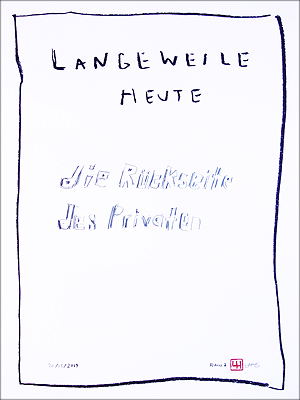 LANGEWEILE
HEUTE
die Rückseite
des Privaten